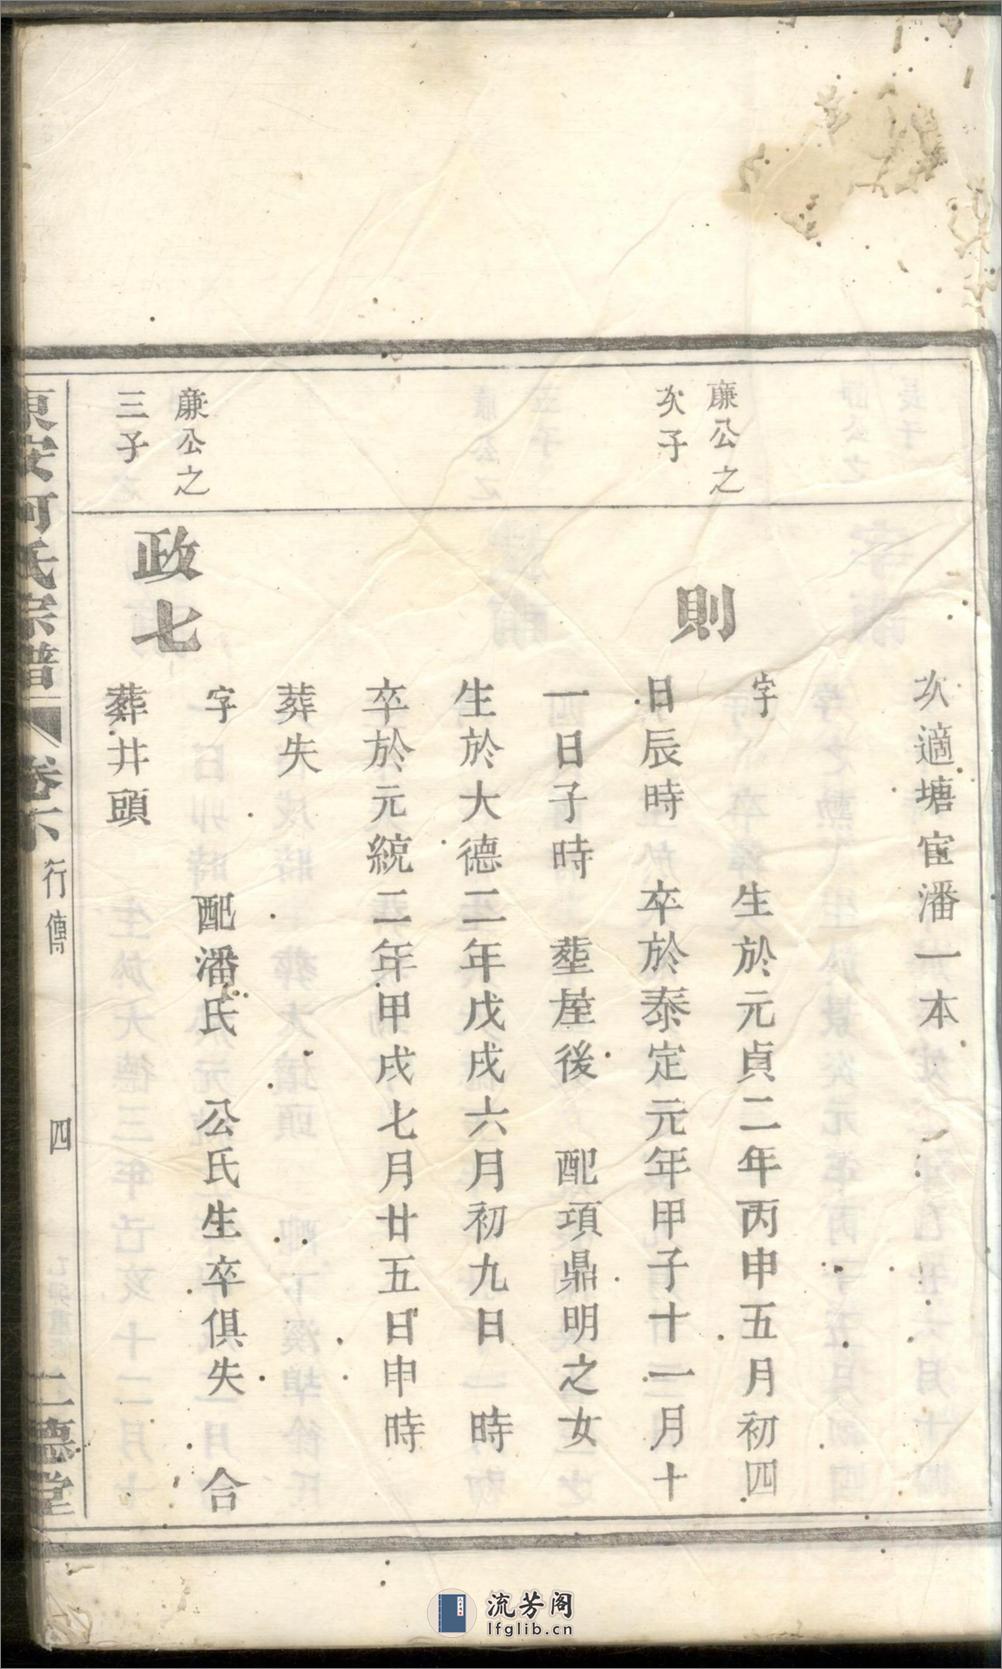 次適塘㝔潘一本
廉公之
次子
則
字　生於元貞二年丙申五月初四
日辰時　卒於泰定元年甲子十一月十
一日子時　塟屋後　配項鼎明之女
生於大德二年戊戌六月初九日　時
卒於元統二年甲戌七月廿五日申時
葬失
廉公之
三子
政七
字　配潘氏　公氏生卒俱失　合
葬井頭
東安何氏宗譜　卷下　行傳　四　二德堂
流芳阁
lfglib.cn